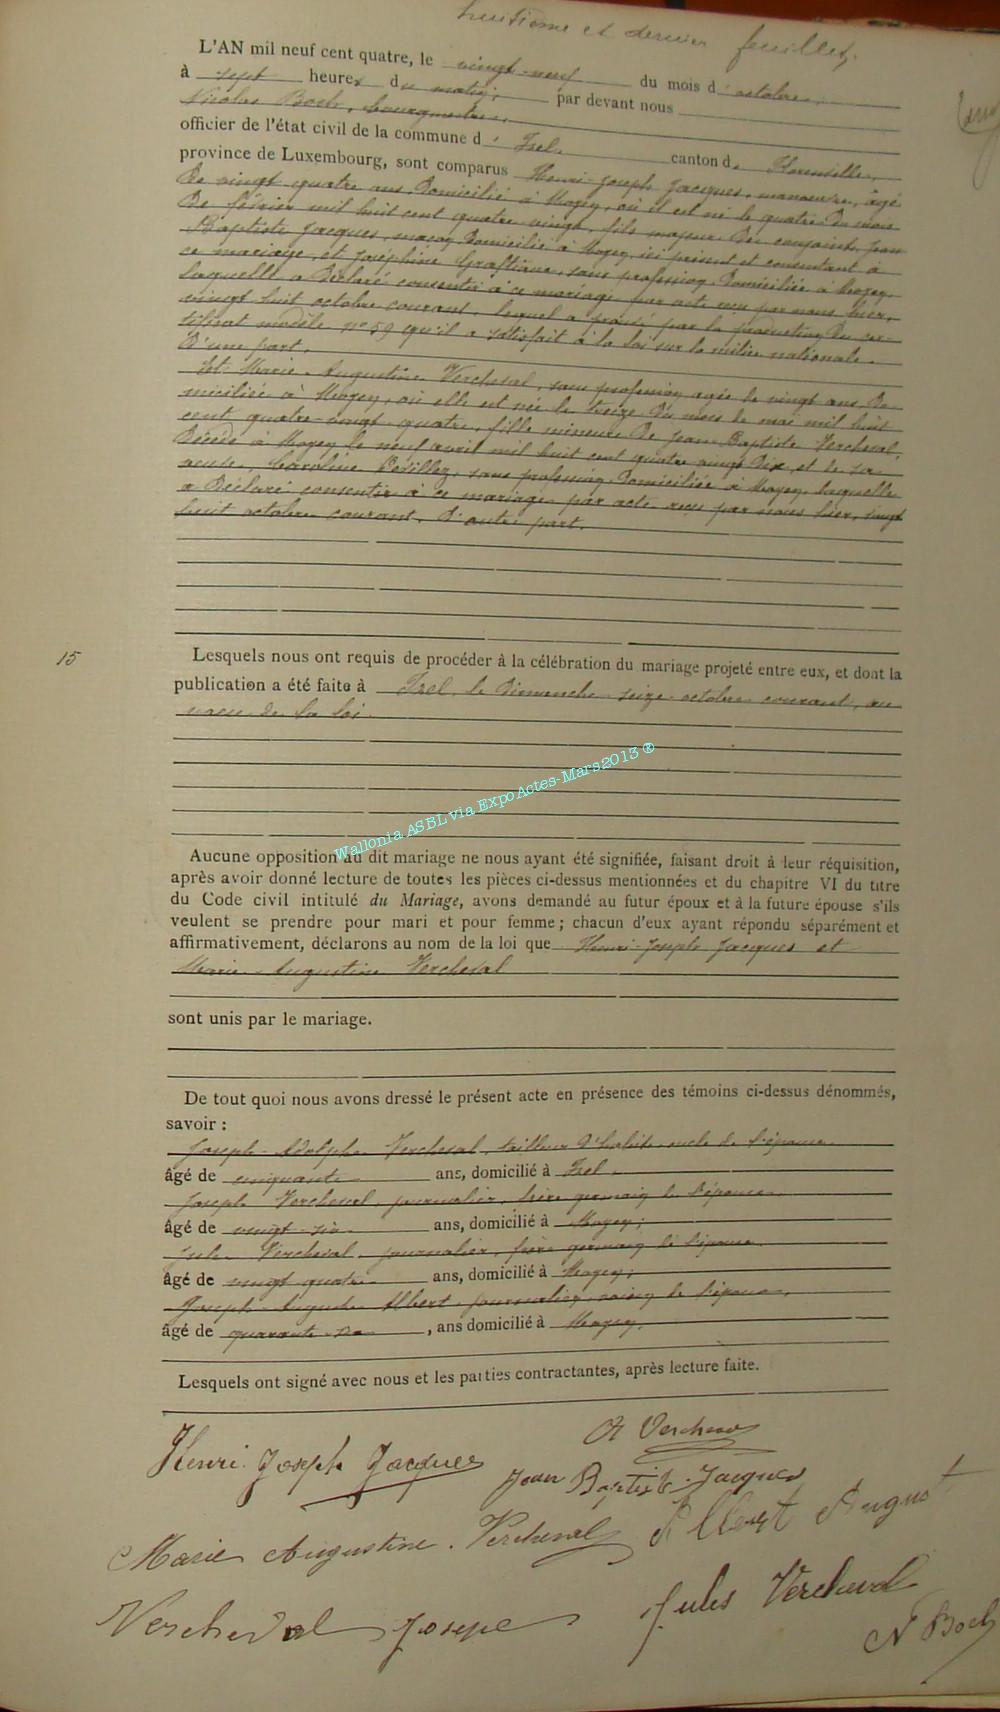 huitième et dernier feuillet,
L'AN mil neuf cent quatre, le vingt-neuf du mois d'octobre,
à sept heures du matin, par devant nous
Nicolas Bosh, bourgmestre,
officier de l'état civil de la commune d'Izel, canton de Florenville,
province de Luxembourg, sont comparus Henri-Joseph Jacques, manœuvre, âgé
de vingt quatre ans, domicilié à Moyen, où il est né le quatre du mois
de février mil huit cent quatre-vingt, fils majeur des conjoints Jean
Baptiste Jacques, maçon, domicilié à Moyen, ici présent et consentant à
ce mariage, et Joséphine sans profession, domiciliée à Moyen,
laquelle a déclaré consentir à ce mariage par acte reçu par nous hier,
vingt huit octobre courant, lequel a prouvé par la production du cer-
tificat modèle n° 59 qu'il a satisfait à la loi sur la milice nationale.
D'une part.
Et Marie-Augustine Vercheval, sans profession, agée de vingt ans, do-
miciliée à Moyen, où elle est née le treize du mois de mai mil huit
cent quatre-vingt-quatre, fille mineure de Jean-Baptiste Vercheval,
décédé à Moyen le neuf avril mil huit cent quatre vingt dix, et de sa
veuve, Caroline sans profession, domiciliée à Moyen, laquelle
a déclaré consentir à ce mariage par acte reçu par nous hier, vingt
huit octobre courant, d'autre part.
15
Lesquels nous ont requis de procéder à la célébration du mariage projeté entre eux, et dont la
publication a été faite à Izel, le dimanche seize octobre courant, au
vœu de la loi.
Wallonia ASBL via ExpoActes-Mars2013 ®
Aucune opposition au dit mariage ne nous ayant été signifiée, faisant droit à leur réquisition,
après avoir donné lecture de toutes les pièces ci-dessus mentionnées et du chapitre VI du titre
du Code civil intitulé du Mariage, avons demandé au futur époux et à la future épouse s'ils
veulent se prendre pour mari et pour femme ; chacun d'eux ayant répondu séparément et
affirmativement, déclarons au nom de la loi que Henri-Joseph Jacques et
Marie-Augustine Vercheval
sont unis par le mariage.
De tout quoi nous avons dressé le présent acte en présence des témoins ci-dessus dénommés,
savoir :
Joseph-Adolphe Vercheval, tailleur d'habits, oncle de l'épouse
âgé de cinquante ans, domicilié à Izel,
Joseph Vercheval, journalier, frère germain de l'épouse,
âgé de vingt-six ans, domicilié à Moyen;
Jules Vercheval, journalier, frère germain de l'épouse
âgé de vingt quatre ans, domicilié à Moyen;
Joseph-Auguste Albert, journalier, voisin de l'épouse,
âgé de quarante-six, ans domicilié à Moyen,
Lesquels ont signé avec nous et les parties contractantes, après lecture faite.
Henri Joseph Jacques
A Vercheval
Jean Baptiste Jacques
Marie Augustine Vercheval
Albert August
Vercheval Josepe
Jules Vercheval
N Boch